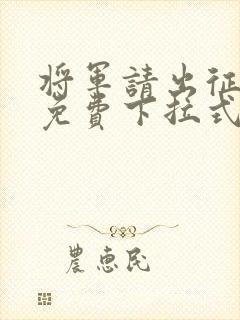 將軍請出征
免費下拉式
農惠民